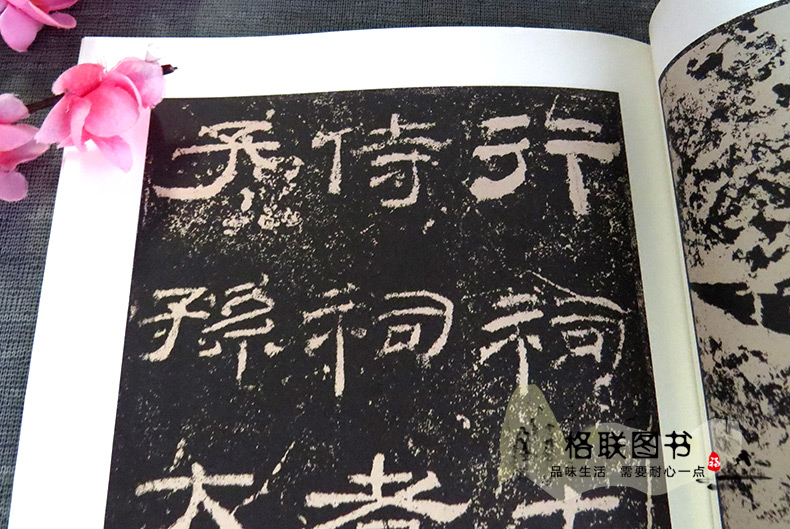 行祠
侍祠者
子孫大
格联图书
品味生活 需要耐心一点
福